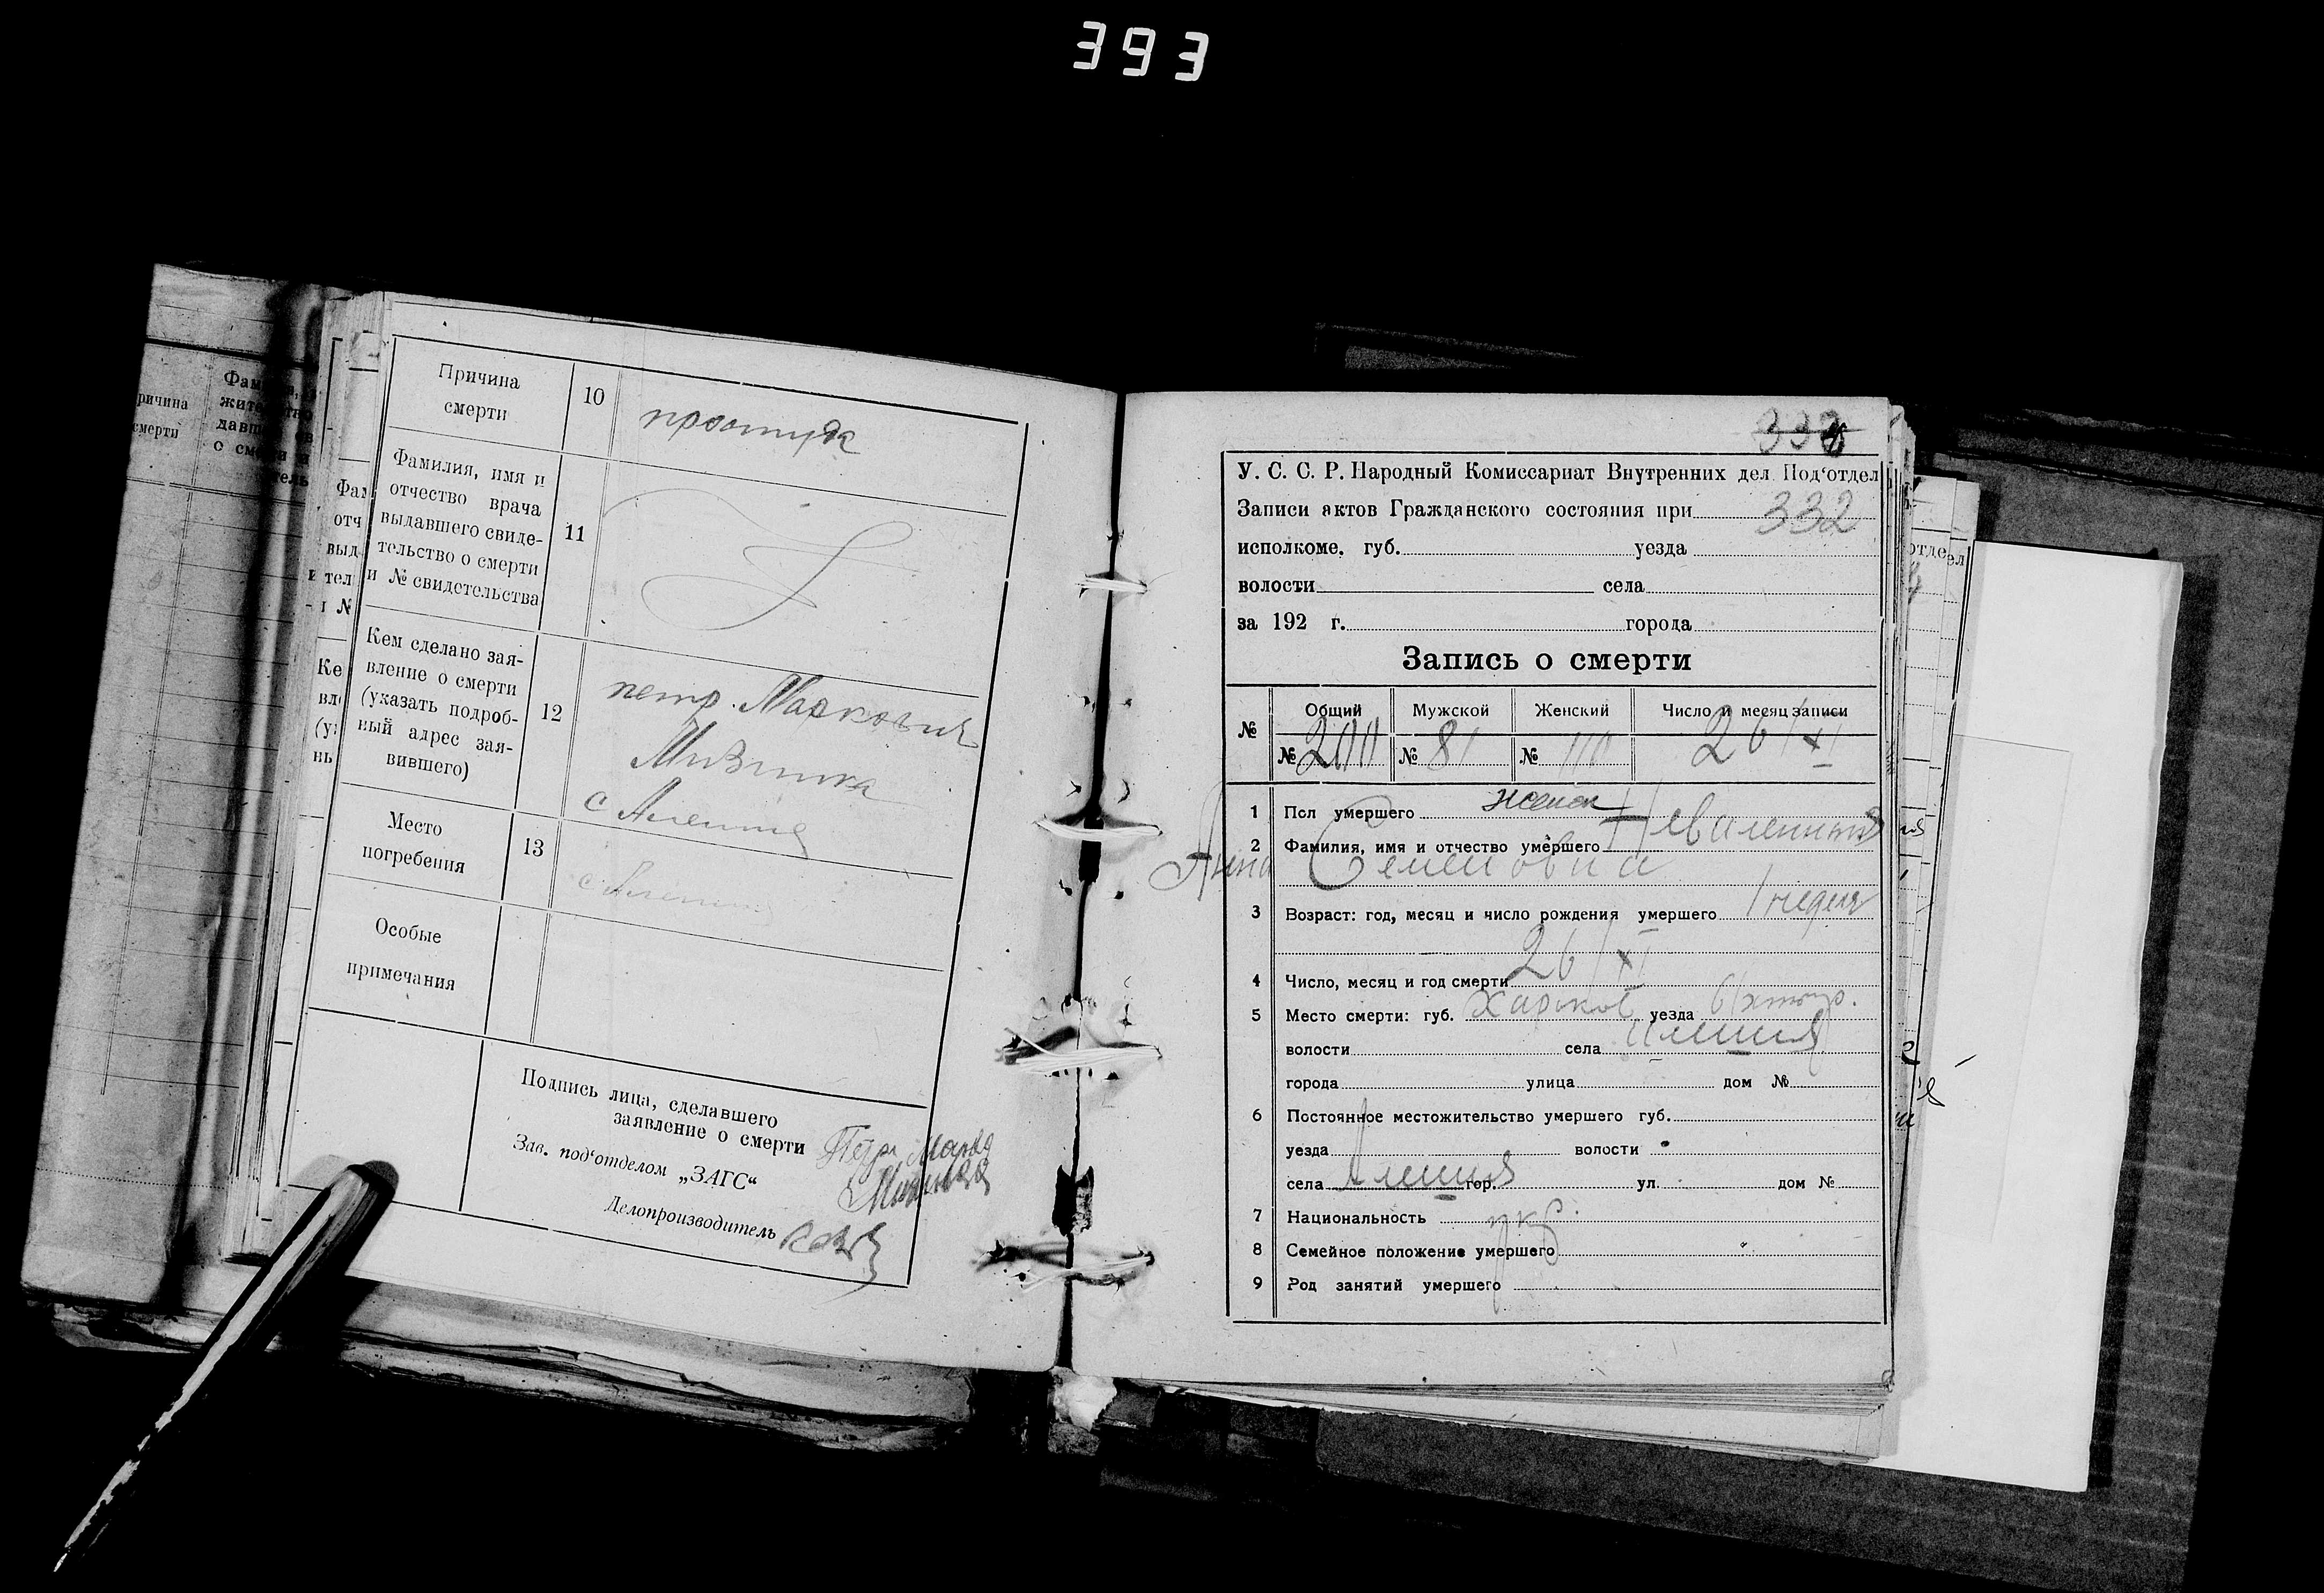 393
ричина
смерти
Причина
смерти
10
простуда
Фамилия, имя и
отчество врача
выдавшего свиде-
тельство о смерти
и № свидетельства
11
Кем сделано зая-
вление о смерти
(указать подроб-
ный адрес зая-
вившего)
12
петр. Маркович
с
Место
погребения
13
с
Особые
примечания
Подпись лица, сделавшего
заявление о смерти
Зав. под‘отделом „ЗАГС“
Делопроизводитель
У. С. С. Р. Народный Комиссариат Внутренних дел Под‘отдел
Записи актов Гражданского состояния при 332
исполкоме. губ. уезда
волости села
за 192 г. города
Запись о смерти
№ Общий Мужской Женский Число и месяц записи
№ 200 № 81 № 110 26/XI
1 Пол умершего женск
2 Фамилия, имя и отчество умершего
Анна Семеновна
3 Возраст: год, месяц и число рождения умершего 1 неделя
4 Число, месяц и год смерти 26/XI
5 Место смерти: губ. Харьков уезда
волости села
города улица дом №
6 Постоянное местожительство умершего губ.
уезда волости
села гор. ул. дом №
7 Национальность укр.
8 Семейное положение умершего
9 Род занятий умершего